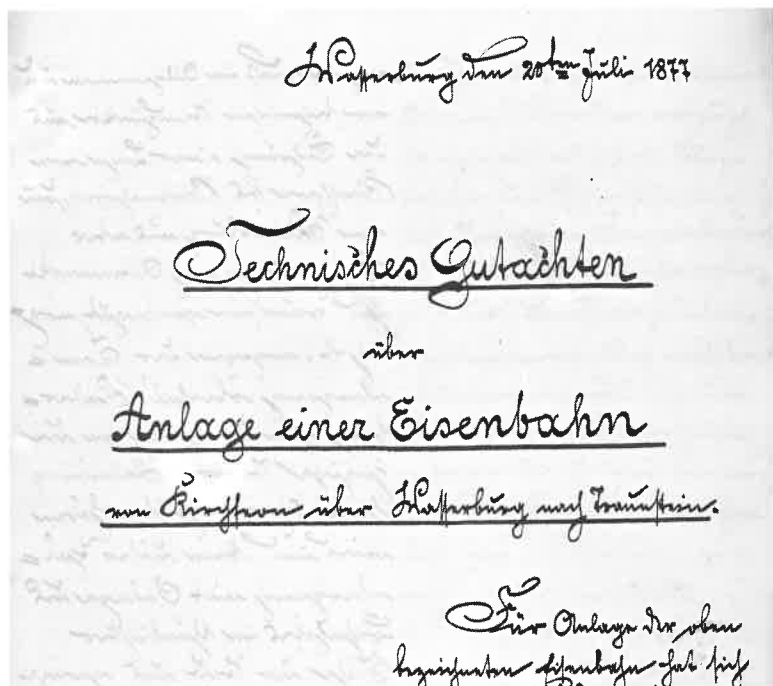 Wasserburg den 20ten Juli 1877
Technisches Gutachten
über
Anlage einer Eisenbahn
von Kirchseon über Wasserburg nach Traunstein.
Für Anlage der oben
bezeichneten Eisenbahn hat sich